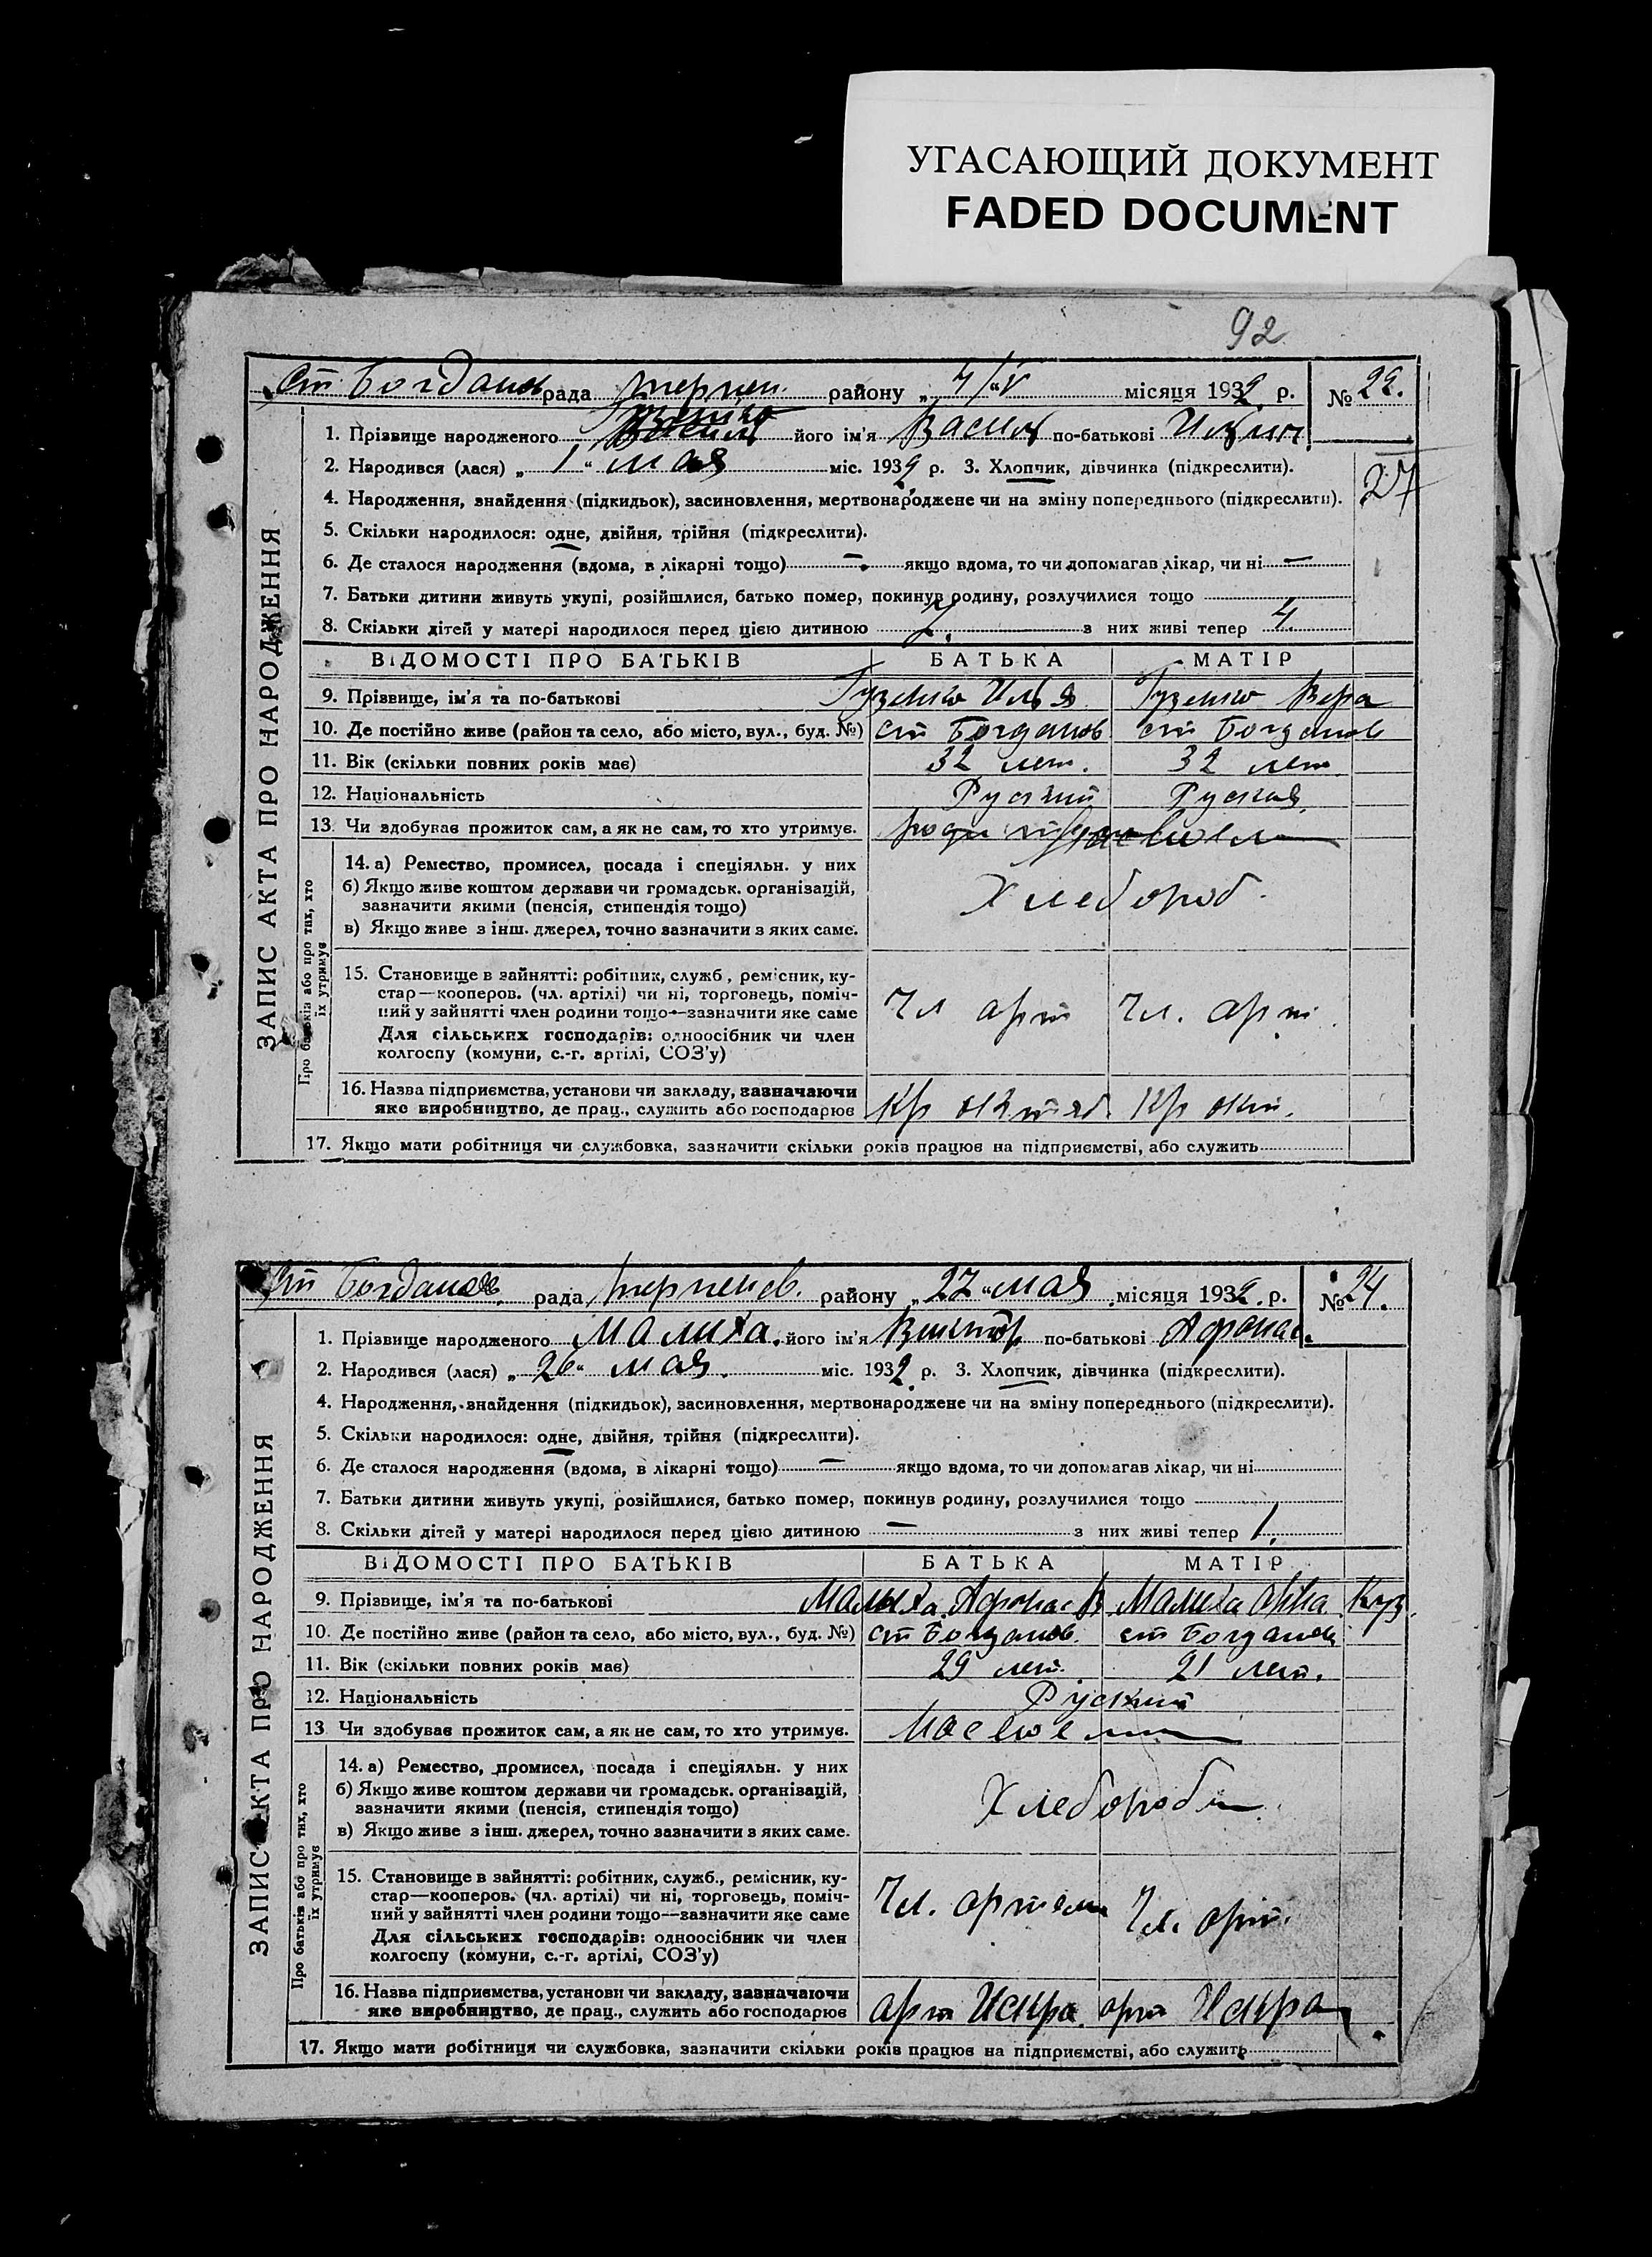 УГАСАЮЩИЙ ДОКУМЕНТ
FADED DOCUMENT
92
Ст Богданов рада Терпен. району „ 4/V “ місяця 1932 р. № 22.
1. Прізвище народженого Гузенко його ім'я Васил по-батькові Ильич
2. Народився (лася) „ 1 “ мая міс. 1932 р. 3. Хлопчик, дівчинка (підкреслити).
27
4. Народження, знайдення (підкидьок), засиновлення, мертвонароджене чи на зміну попереднього (підкреслити).
5. Скільки народилося: одне, двійня, трійня (підкреслити).
6. Де сталося народження (вдома, в лікарні тощо) — якщо вдома, то чи допомагав лікар, чи ні —
7. Батьки дитини живуть укупі, розійшлися, батько помер, покинув родину, розлучилися тощо
8. Скільки дітей у матері народилося перед цією дитиною 7. з них живі тепер 4
ВІДОМОСТІ ПРО БАТЬКІВ БАТЬКА МАТІР
9. Прізвище, ім'я та по-батькові Гузенко Илья Гузенко Вера
10. Де постійно живе (район та село, або місто, вул., буд. №) ст Богданов ст Богданов
11. Вік (скільки повних років має) 32 лет. 32 лет
12. Національність Руский Руская
13. Чи здобуває прожиток сам, а як не сам, то хто утримує.
14. а) Ремество, промисел, посада і спеціяльн. у них
б) Якщо живе коштом держави чи громадськ. організацій,
зазначити якими (пенсія, стипендія тощо)
в) Якщо живе з інш. джерел, точно зазначити з яких саме.
Хлебороб.
15. Становище в зайнятті: робітник, служб., ремісник, ку-
стар—кооперов. (чл. артілі) чи ні, торговець, поміч-
ний у зайнятті член родини тощо—зазначити яке саме
Для сільських господарів: одноосібник чи член
колгоспу (комуни, с.-г. артілі, СОЗ'у)
Чл арт Чл. арт.
16. Назва підприємства, установи чи закладу, зазначаючи
яке виробництво, де прац., служить або господарює Кр октяб. Кр окт.
17. Якщо мати робітниця чи службовка, зазначити скільки років працює на підприємстві, або служить
ЗАПИС АКТА ПРО НАРОДЖЕННЯ
Про батьків або про тих, хто
їх утримує
Ст Богданов. рада Терпенев. району „ 27 “ мая місяця 1932. р. № 24.
1. Прізвище народженого Малиха. його ім'я Виктор по-батькові Афонас.
2. Народився (лася) „ 26 “ мая. міс. 1932 р. 3. Хлопчик, дівчинка (підкреслити).
4. Народження, знайдення (підкидьок), засиновлення, мертвонароджене чи на зміну попереднього (підкреслити).
5. Скільки народилося: одне, двійня, трійня (підкреслити).
6. Де сталося народження (вдома, в лікарні тощо) — якщо вдома, то чи допомагав лікар, чи ні
7. Батьки дитини живуть укупі, розійшлися, батько помер, покинув родину, розлучилися тощо
8. Скільки дітей у матері народилося перед цією дитиною — з них живі тепер 1.
ВІДОМОСТІ ПРО БАТЬКІВ БАТЬКА МАТІР
9. Прізвище, ім'я та по-батькові Малыха Афонас В Малиха Анна Куз.
10. Де постійно живе (район та село, або місто, вул., буд. №) ст Богданов. ст Богданов
11. Вік (скільки повних років має) 29 лет. 21 лет.
12. Національність Руский
13. Чи здобуває прожиток сам, а як не сам, то хто утримує.
14. а) Ремество, промисел, посада і спеціяльн. у них
б) Якщо живе коштом держави чи громадськ. організацій,
зазначити якими (пенсія, стипендія тощо)
в) Якщо живе з інш. джерел, точно зазначити з яких саме.
Хлеборобы
15. Становище в зайнятті: робітник, служб., ремісник, ку-
стар—кооперов. (чл. артілі) чи ні, торговець, поміч-
ний у зайнятті член родини тощо—зазначити яке саме
Для сільських господарів: одноосібник чи член
колгоспу (комуни, с.-г. артілі, СОЗ'у)
Чл. артели Чл. арт.
16. Назва підприємства, установи чи закладу, зазначаючи
яке виробництво, де прац., служить або господарює арт Искра. арт Искра
17. Якщо мати робітниця чи службовка, зазначити скільки років працює на підприємстві, або служить
ЗАПИС АКТА ПРО НАРОДЖЕННЯ
Про батьків або про тих, хто
їх утримує